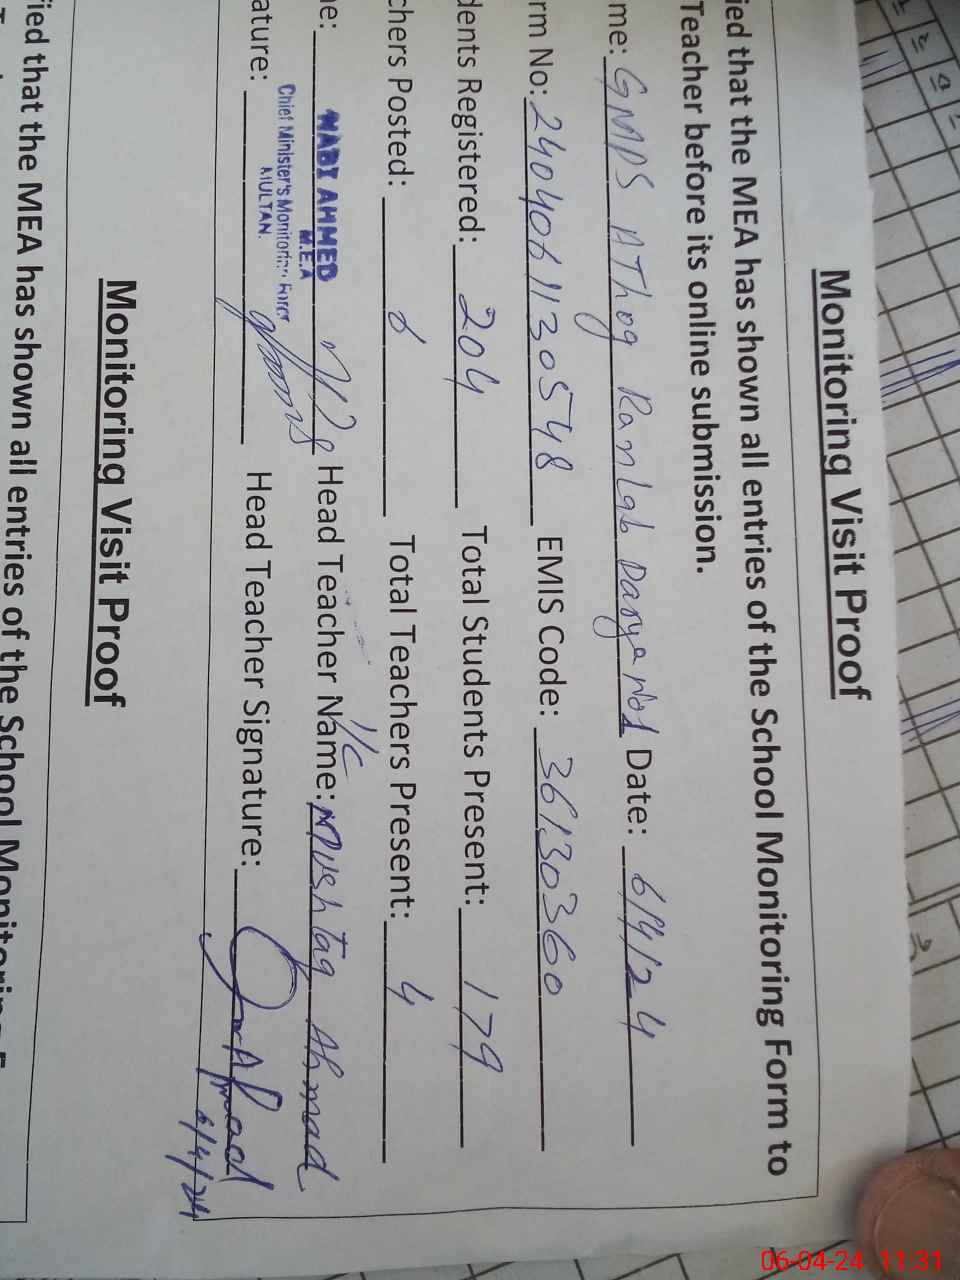 Monitoring Visit Proof
ied that the MEA has shown all entries of the School Monitoring Form to
Teacher before its online submission.
me: GMPS AThog Ranlab Darya No1 Date: 6/4/24
rm No: 240406113 0548 EMIS Code: 36130360
dents Registered: 204 Total Students Present: 179
chers Posted: 6 Total Teachers Present: 4
I/C
ne: NABI AHMED Head Teacher Name: Mushtaq Ahmad
M.E.A
Chief Minister's Monitoring Force
MULTAN.
ature: Head Teacher Signature:
6/4/24
Monitoring Visit Proof
ied that the MEA has shown all entries of the School Monitoring F
06-04-24 11:31